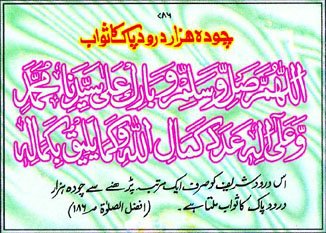 ۷۸۶
چودہ ہزار درود پاک کا ثواب
اللهم صل وسلم وبارك على سيدنا محمد
وعلى اله عدد كمال الله وكما يليق بكماله
اس درود شریف کو صرف ایک مرتبہ پڑھنے سے چودہ ہزار
درود پاک کا ثواب ملتا ہے۔ (افضل الصلوٰة صـ ۱۸۶)